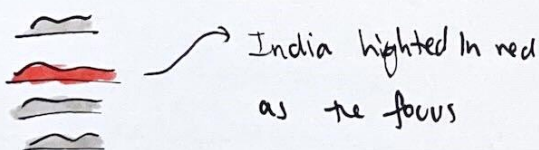 India highted In red
as the focus